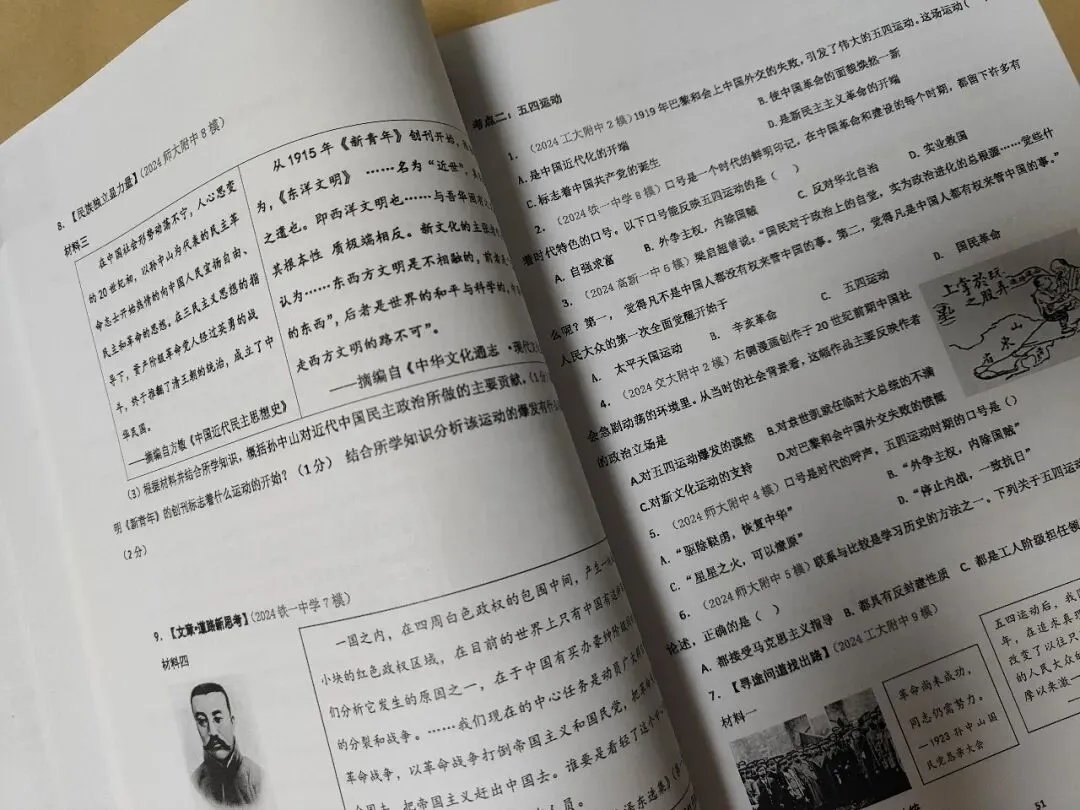 8. 【民族独立显力量】(2024 师大附中 8 模)
材料三
在中国社会形势动荡不宁，人心思变
的 20 世纪初，以孙中山为代表的民主革
命志士开始热情的向中国人民宣扬自由、
民主和革命的思想。在三民主义思想的指
导下，资产阶级革命党人经过英勇的战
斗，终于推翻了清王朝的统治，成立了中
华民国。
——摘编自方敏《中国近代民主思想史》
从 1915 年《新青年》创刊开始，
《东洋文明》……名为“近世”，
之道也。即西洋文明也……与吾华固有
其根本性 质极端相反。新文化的主张
认为……东西方文明是不相融的，前
的东西”，后者是世界的和平与科学的，
走西方文明的路不可”。
——摘编自《中华文化通志 ·现代
(3) 根据材料并结合所学知识，概括孙中山对近代中国民主政治所做的主要贡献。(1分)
明《新青年》的创刊标志着什么运动的开始？(1分) 结合所学知识分析该运动的爆发有什
(2分)
9. 【文章·道路新思考】(2024 铁一中学 7 模)
材料四
一国之内，在四周白色政权的包围中间，产生一
小块的红色政权区域，在目前的世界上只有中国有这
们分析它发生的原因之一，在于中国有买办豪绅阶级
的分裂和战争。……我们现在的中心任务是动员广大
革命战争，以革命战争打倒帝国主义和国民党，把革
个国去，把帝国主义赶出中国去。谁要是看轻了这个
人员。
泽东选集》
考点二：五四运动
1. (2024 工大附中 2 模) 1919 年巴黎和会上中国外交的失败，引发了伟大的五四运动。这场运动(
A. 是中国近代化的开端 B. 使中国革命的面貌焕然一新
C. 标志着中国共产党的诞生 D. 是新民主主义革命的开端
2. (2024 铁一中学 8 模) 口号是一个时代的鲜明印记，在中国革命和建设的每个时期，都留下许多有
着时代特色的口号。以下口号能反映五四运动的是 ( )
A. 自强求富 B. 外争主权，内除国贼 C. 反对华北自治 D. 实业救国
3. (2024 高新一中 6 模) 梁启超曾说：“国民对于政治上的自觉，实为政治进化的总根源……觉些什
么呢？第一， 觉得凡不是中国人都没有权来管中国的事。第二，觉得凡是中国人都有权来管中国的事。”
人民大众的第一次全面觉醒开始于
A. 太平天国运动 B. 辛亥革命 C. 五四运动 D. 国民革命
4. (2024 交大附中 2 模) 右侧漫画创作于 20 世纪前期中国社
会急剧动荡的环境里。从当时的社会背景看，这幅作品主要反映作者
的政治立场是
A.对五四运动爆发的漠然 B.对袁世凯就任临时大总统的不满
C.对新文化运动的支持 D.对巴黎和会中国外交失败的愤慨
5. (2024 师大附中 4 模) 口号是时代的呼声，五四运动时期的口号是 ()
A. “驱除鞑虏，恢复中华” B. “外争主权，内除国贼”
C. “星星之火，可以燎原” D. “停止内战，一致抗日”
6. (2024 师大附中 5 模) 联系与比较是学习历史的方法之一。下列关于五四运
论述，正确的是 ( )
A. 都接受马克思主义指导 B. 都具有反封建性质 C. 都是工人阶级担任领
7. 【寻途问道找出路】(2024 工大附中 9 模)
材料一
革命尚未成功，
同志仍需努力。
—1923 孙中山国
民党恳亲大会
五四运动后，我
年，在追求真理
改变了以往只
的人民大众的
摩以朱漱—